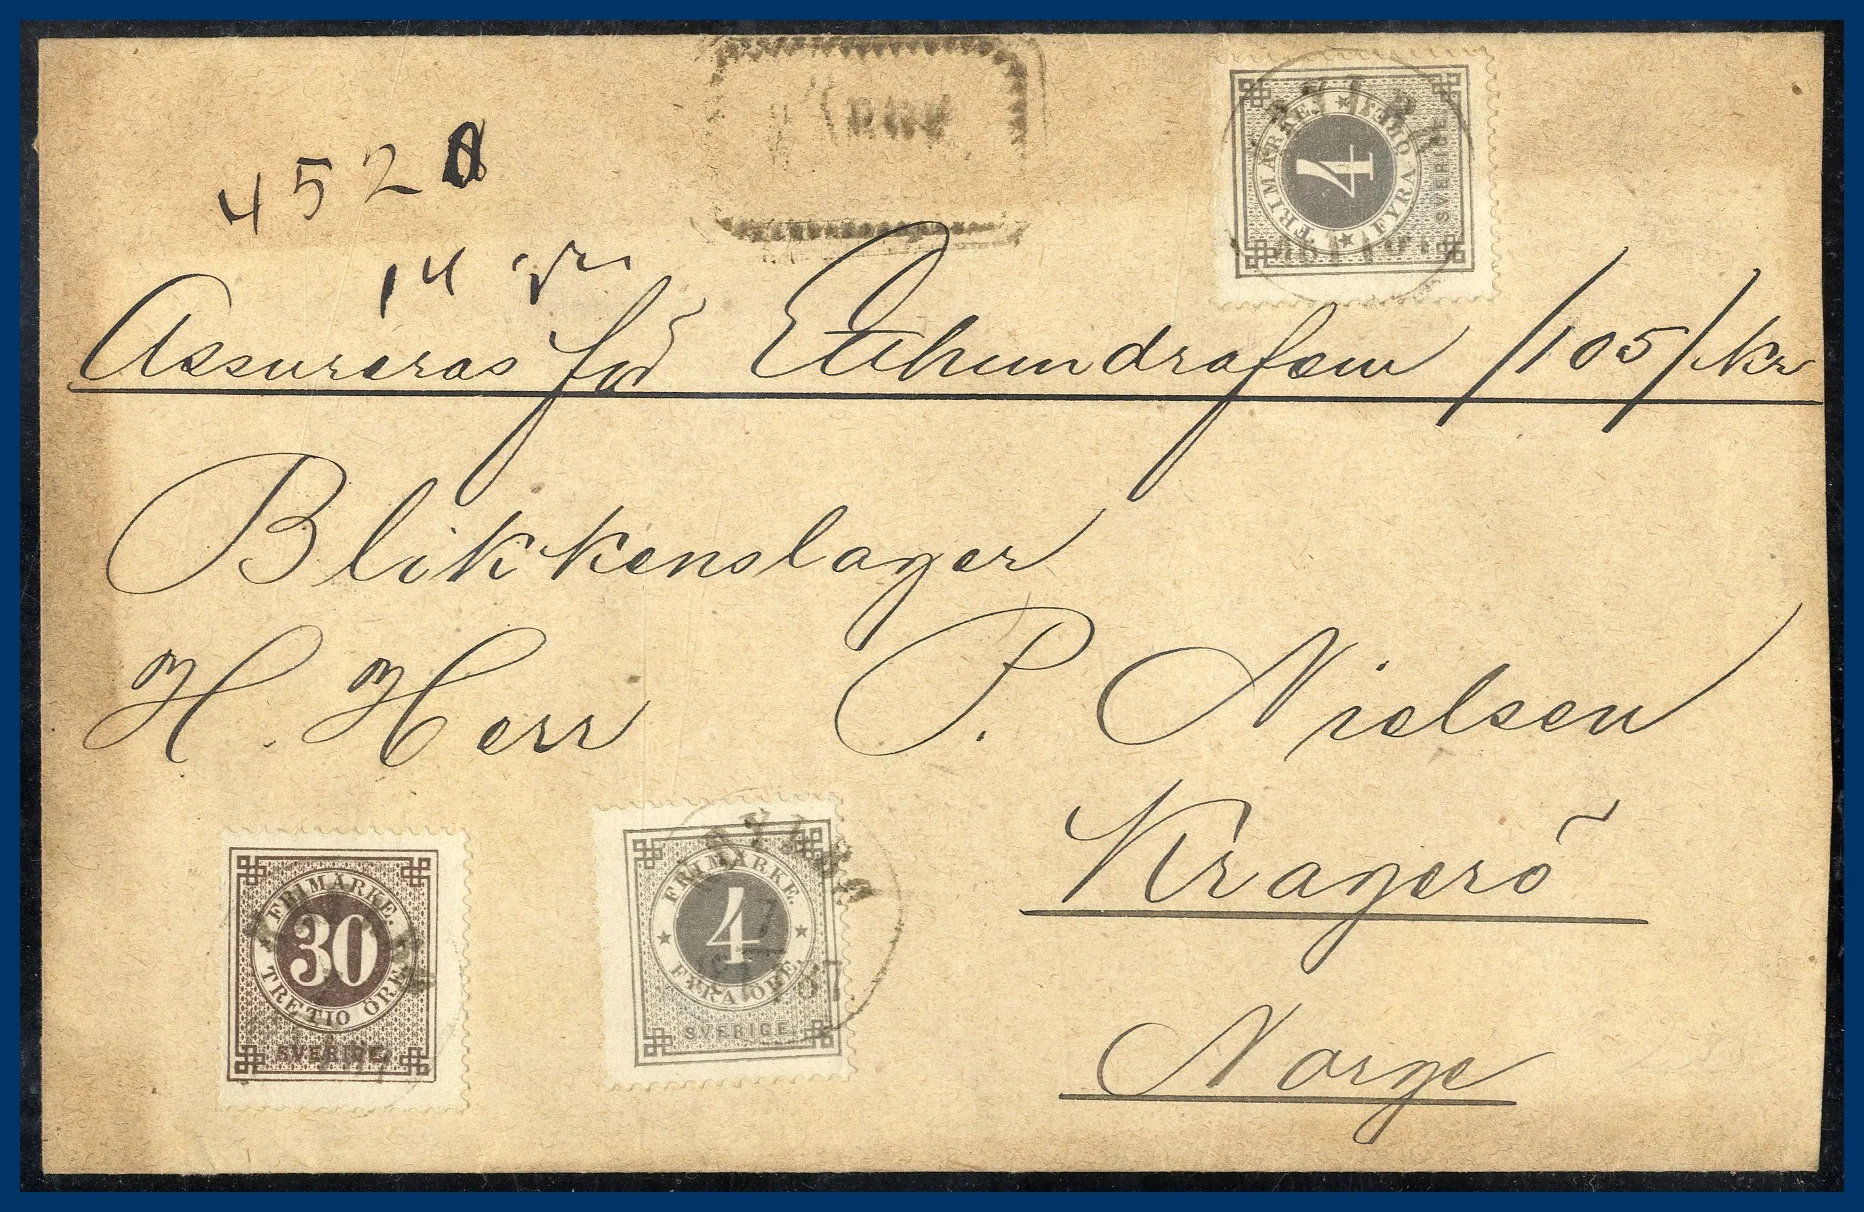 FRIMÄRKE. FYRA ÖRE.
4
SVERIGE.
452
14
Assureras för Etthundrafem /105/ Kr
Blikkenslager
H. Herr P. Nielsen
Kragerö
Norge
FRIMÄRKE.
30
TRETIO ÖRE.
SVERIGE.
FRIMÄRKE.
4
FYRA ÖRE.
SVERIGE.